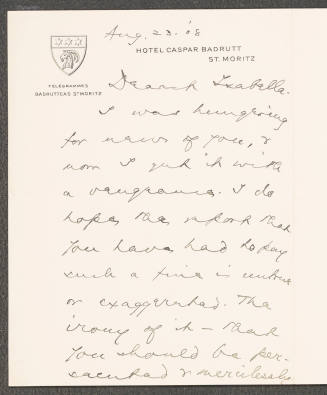 Aug. 23. '08
HOTEL CASPAR BADRUTT
ST. MORITZ
TELEGRAMMES
BADRUTTCAS ST MORITZ
Dearest Isabella.
I was hungering
for news of you, &
now I get it with
a vengeance. I do
hope the report that
you have had to pay
such a fine is untrue
or exaggerated. The
irony of it – that
you should be per-
secuted & mercilessly